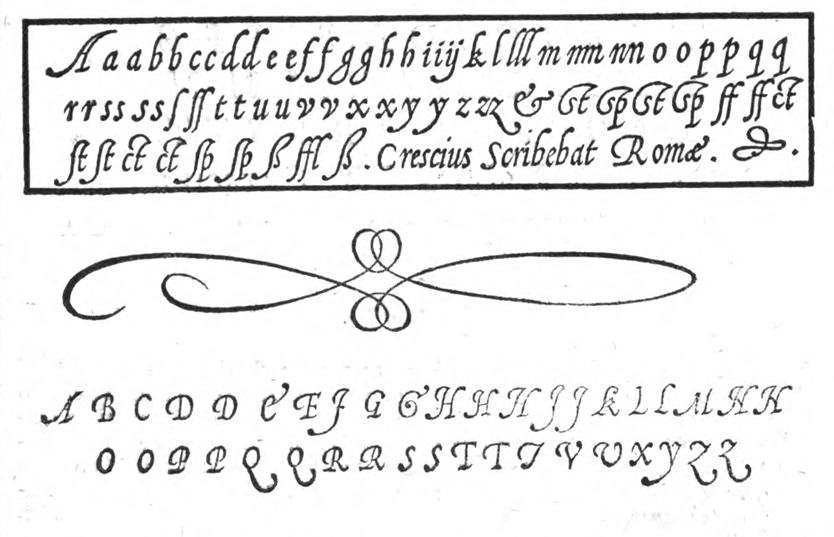 A a a b b c c d d e e f f g g h h i i ij k l l l l m m m n n o o p p q q
r r s s s s ſ ſſ t t u u v v x x y y z z z & ct sp ct sp ff ff ct
ſt ſt ct ct ſp ſp ß ffl ß . Crescius Scribebat Romæ .
A B C D D E E F G G H H H J J K L L M N N
O O P P Q Q R R S S T T T V V X Y Z Z